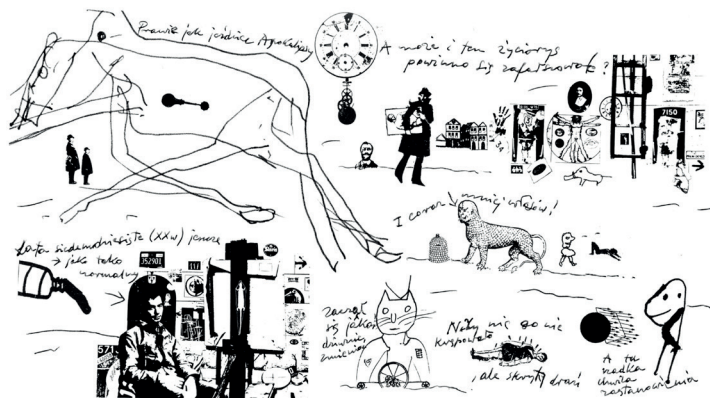 Prawie jak jeźdźce Apokalipsy
A może i ten życiorys
powinno się zafałszować?
7150
I coraz mniej włosów!
Lata siedemdziesiąte (XXw) jeszcze
→ jako tako
normalny
352901
57
zaczął
się jakoś
dziwnie
zmieniać
Niby nic go nie
, ale skryty drań
A tu
rzadka
chwila
zastanowienia